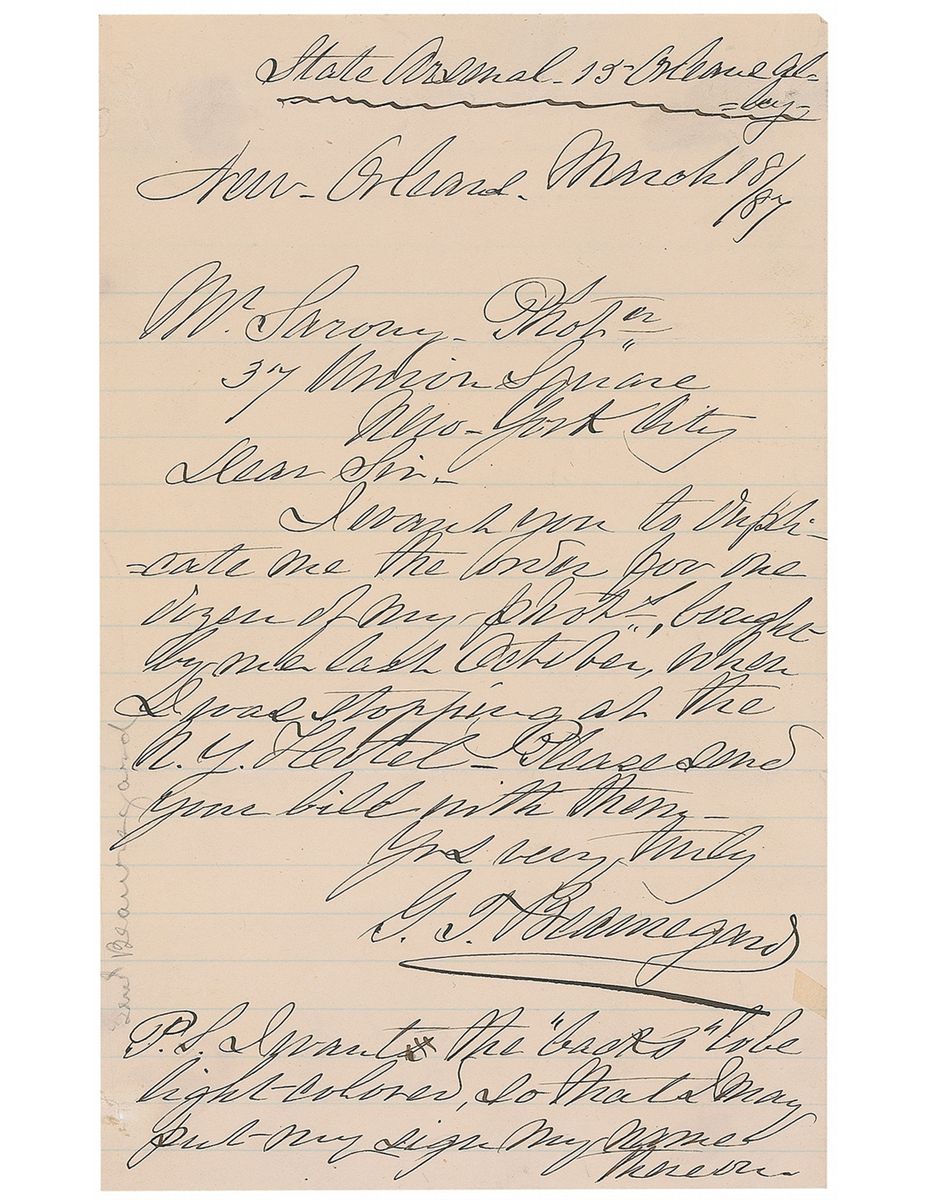 State Arsenal - 15 Orleans Al-
=ley-
New-Orleans. March 18/
/87
Mr. Sarony - Photer
37 Union Square
New-York City
Dear Sir -
I want you to dupli-
=cate me the order for one
dozen of my phots, bought
by me last October, when
I was stopping at the
N.Y. Hotel - Please send
your bill with them -
Yrs very truly
G. T. Beauregard
P.S. I want the "backs" to be
light-colored, so that I may
put my sign my name
thereon -
Genl Beauregard